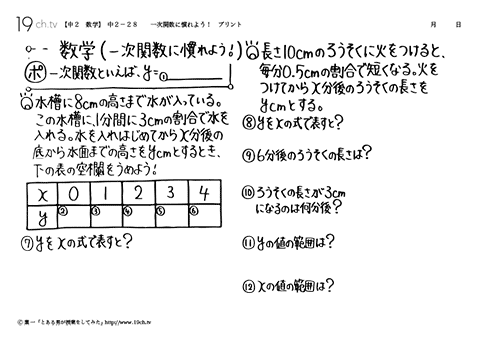 19ch.tv 【中2 数学】 中2-28 一次関数に慣れよう! プリント 月 日
数学(一次関数に慣れよう!)
ポ 一次関数といえば、y=①
水槽に8cmの高さまで水が入っている。
この水槽に、1分間に3cmの割合で水を
入れる。水を入れはじめてからx分後の
底から水面までの高さをycmとするとき、
下の表の空欄をうめよう!
x 0 1 2 3 4
y ② ③ ④ ⑤ ⑥
⑦yをxの式で表すと?
長さ10cmのろうそくに火をつけると、
毎分0.5cmの割合で短くなる。火を
つけてからx分後のろうそくの長さを
ycmとする。
⑧yをxの式で表すと?
⑨6分後のろうそくの長さは?
⑩ろうそくの長さが3cm
になるのは何分後?
⑪yの値の範囲は?
⑫xの値の範囲は?
Ⓒ葉一「とある男が授業をしてみた」http://www.19ch.tv